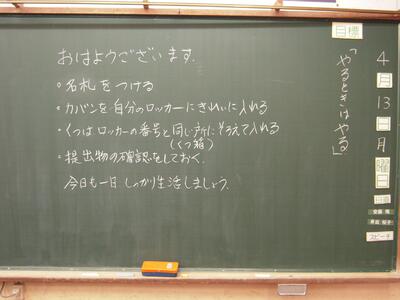 おはようございます.
。名札をつける
。カバンを自分のロッカーにきれいに入れる
。くつはロッカーの番号と同じ所にそろえて入れる
(くつ箱)
。提出物の確認をしておく.
今日も一日しっかり生活しましょう.
目標
「やるときはやる」
4月13日月曜日
日直
スピーチ